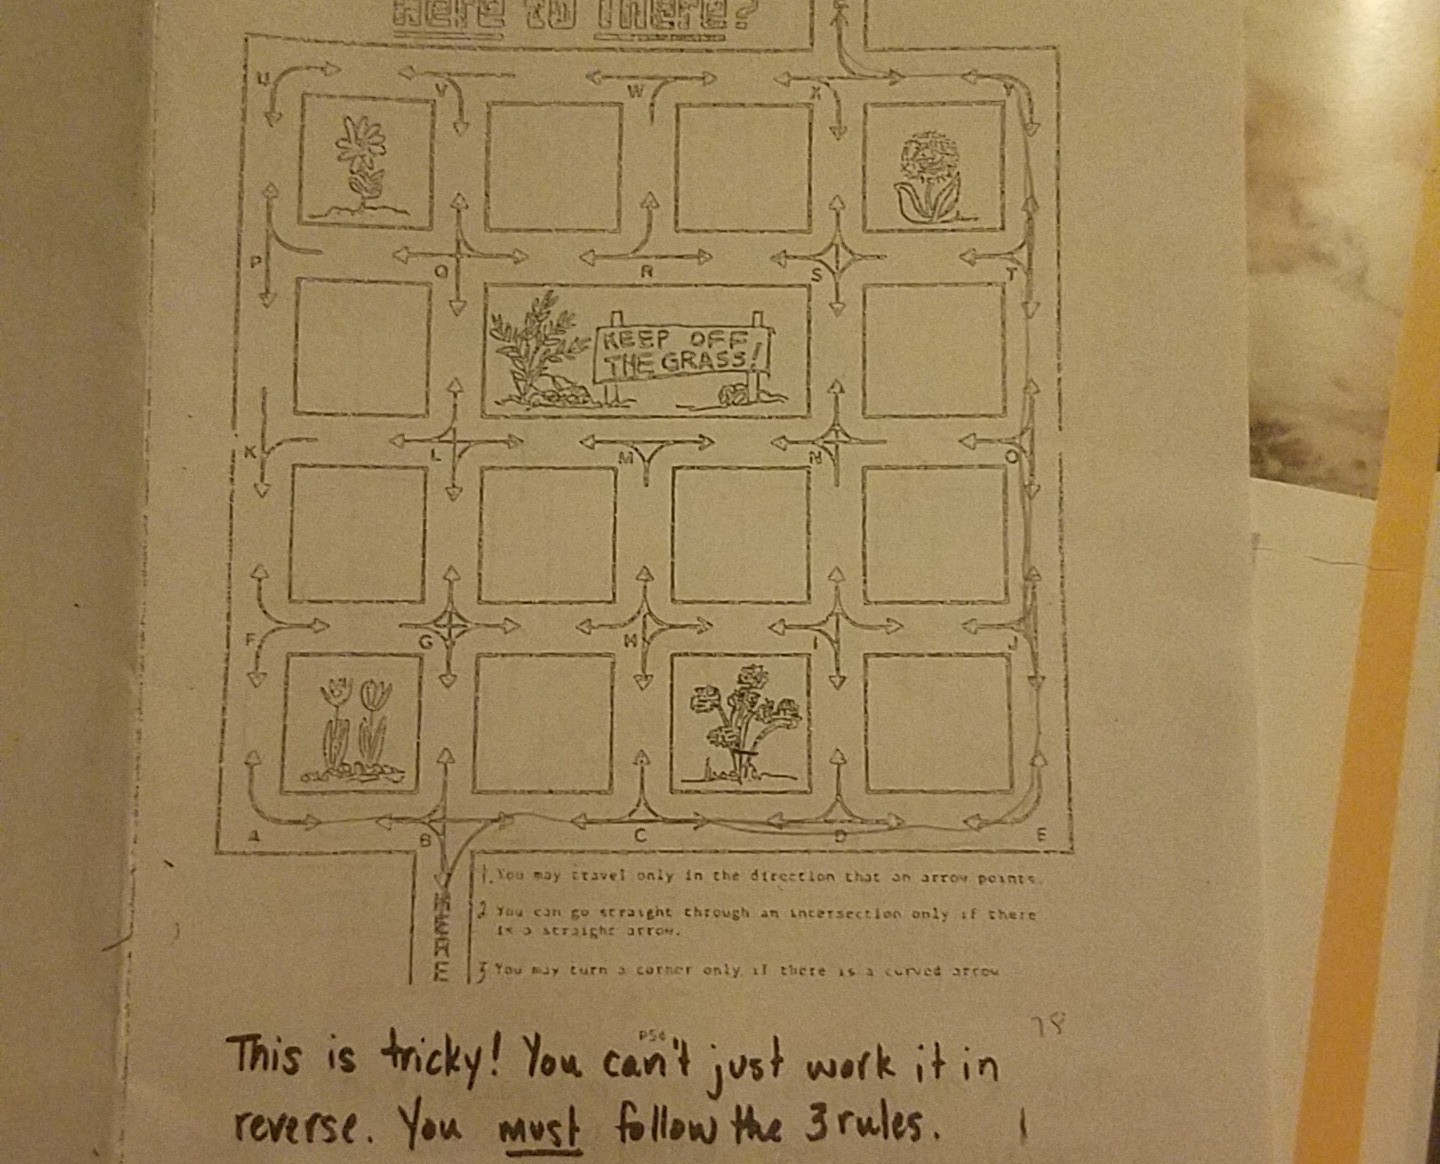 Here to There?
U V W X Y
P Q R S T
KEEP OFF
THE GRASS!
K L M N O
F G H I J
A B C D E
HERE
1. You may travel only in the direction that an arrow points.
2 You can go straight through an intersection only if there
is a straight arrow.
3 You may turn a corner only if there is a curved arrow
78
This is tricky! You can't just work it in
reverse. You must follow the 3 rules.